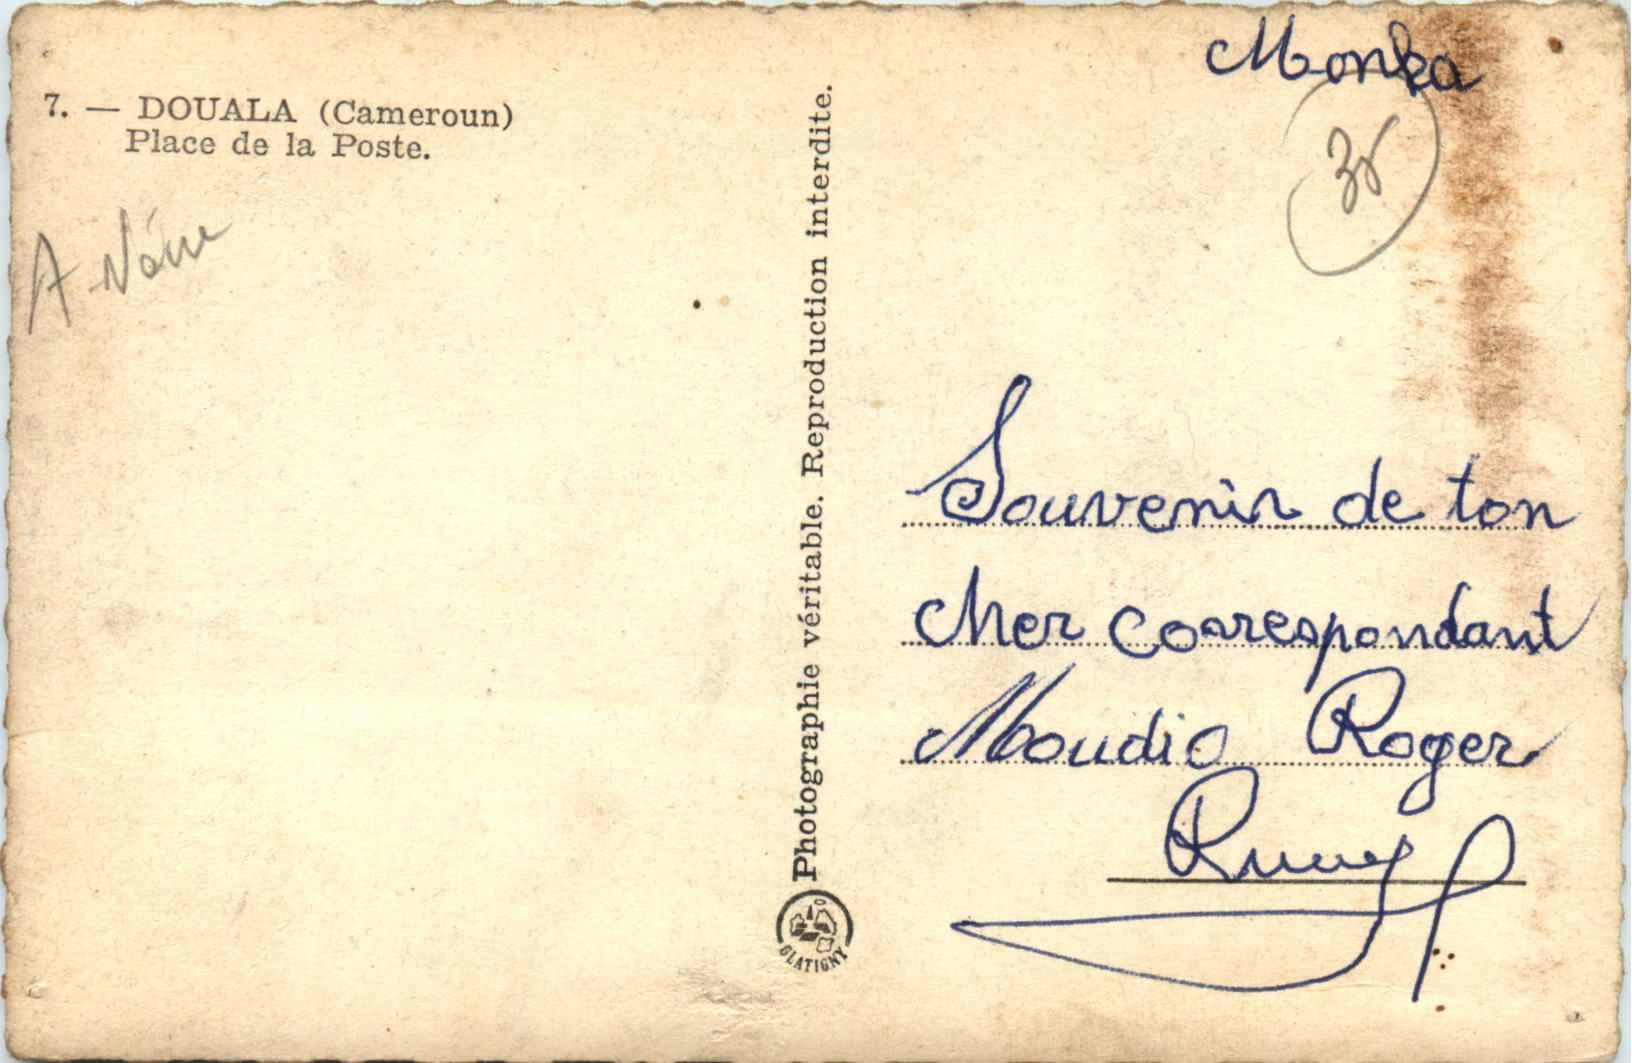 7. — DOUALA (Cameroun)
Place de la Poste.
Photographie véritable. Reproduction interdite.
GLATIGNY
Souvenir de ton
cher correspondant
Moudio Roger